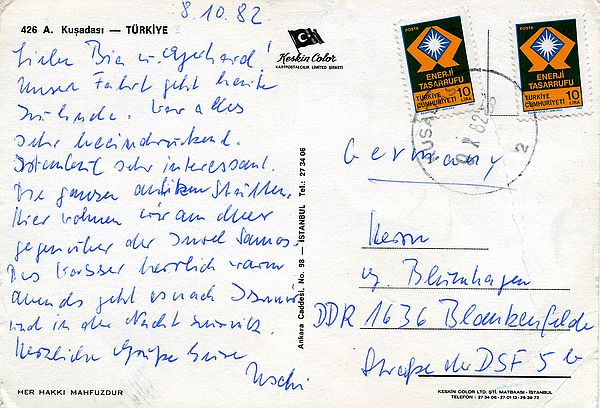 8.10.82
426 A. Kuşadası — TÜRKİYE
Liebe Bia u. Eyerhard!
Unser Fahrt geht heute
zu Ende. War alles
sehr beeindruckend.
Istanbul sehr interessant.
Die ganzen antiken Stätten.
Hier wohnen wir am Meer
gegenüber der Insel Samos.
Das Wasser herrlich warm
abends geht es nach Izmir
und in der Nacht zurück.
Herzliche Grüße Eure
Uschi
HER HAKKI MAHFUZDUR
Keskin Color
KARTPOSTALCILIK LIMITED ŞİRKETİ
Ankara Caddesi, No. 98 — İSTANBUL Tel.: 27 34 06
POSTA
ENERJİ
TASARRUFU
TÜRKİYE
CUMHURİYETİ 10
LİRA
POSTA
ENERJİ
TASARRUFU
TÜRKİYE
CUMHURİYETİ 10
LİRA
Germany
Herrn
Blumhagen
DDR 1636 Blankenfelde
Straße der DSF 5b
KESKİN COLOR LTD. ŞTİ. MATBAASI - İSTANBUL
TELEFON : 27 34 06 - 27 01 13 - 28 38 73